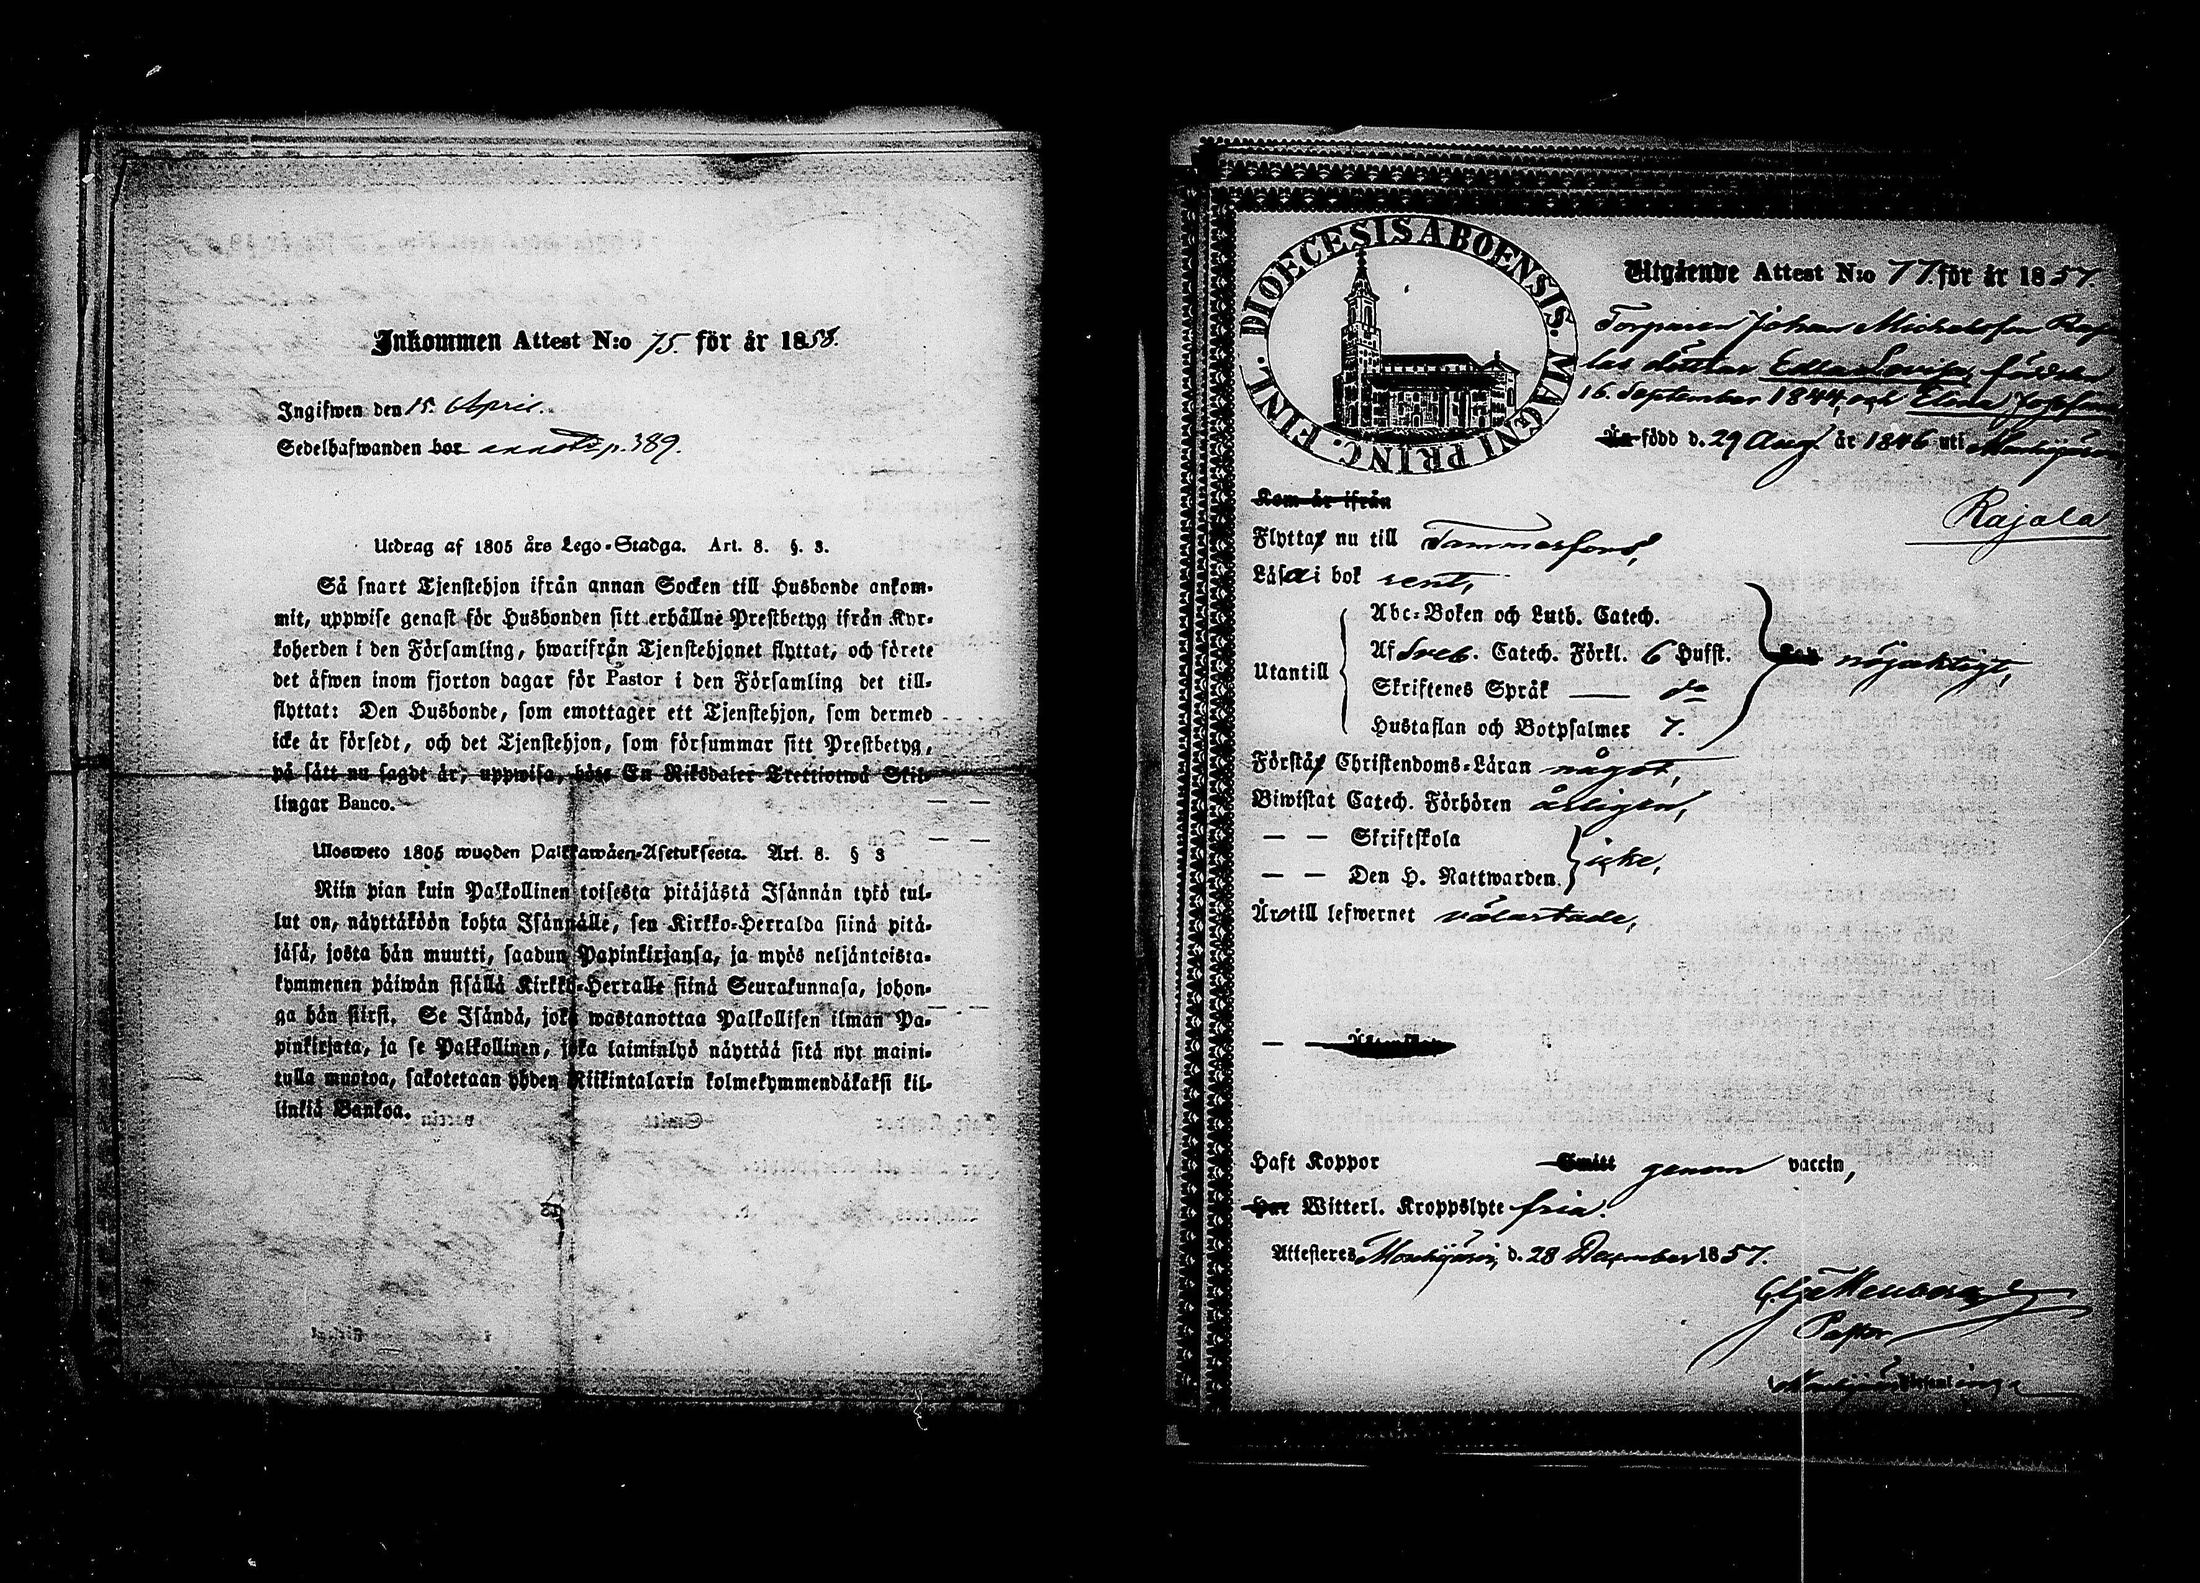 Inkommen Attest N:o 75. för år 1858.
Ingifwen den 15. April.
Sedelhafwanden bor annot: p. 389.
Utdrag af 1805 års Lego-Stadga. Art. 8. §. 3.
Så snart Tjenstehjon ifrån annan Socken till Husbonde ankom-
mit, uppwise genast för Husbonden sitt erhållne Prestbetyg ifrån Kyr-
koherden i den Församling, hwarifrån Tjenstehjonet flyttat, och förete
det äfwen inom fjorton dagar för Pastor i den Församling det till-
flyttat: Den Husbonde, som emottager ett Tjenstehjon, som dermed
icke är försedt, och det Tjenstehjon, som försummar sitt Prestbetyg,
på sätt nu sagdt är, uppwisa, böte En Riksdaler Trettiotwå Skil-
lingar Banco.
Ulosweto 1805 wuoden Palkkawäen-Asetuksesta. Art. 8. § 3
Niin pian kuin Palkollinen toisesta pitäjästä Isännän tykö tul-
lut on, näyttäköön kohta Isännälle, sen Kirkko-Herralda siinä pitä-
jäsä, josta hän muutti, saadun Papinkirjansa, ja myös neljäntoista-
kymmenen päiwän sisällä Kirkko-Herralle siinä Seurakunnasa, johon-
ga hän siirsi. Se Isändä, joka wastanottaa Palkollisen ilman Pa-
pinkirjata, ja se Palkollinen, joka laiminlyö näyttää sitä nyt maini-
tulla muotoa, sakotetaan yhden Riikintalarin kolmekymmendäkaksi kil-
linkiä Bankoa.
DIOECESIS ABOENSIS. MAGNI PRINC. FINL.
Utgående Attest N:o 77. för år 1857.
Torparen Johan Michelsson Raja
las döttrar Edla Lovisa, födde
16. September 1844, och Elina Josefina
Är född d. 29 Aug. år 1846 uti Mouhijärvi
Rajala
Kom år ifrån
Flytta nu till Tammerfors,
Läsa i bok rent,
Abc-Boken och Luth. Catech.
Af Sveb. Catech. Förkl. 6 Hufst.
Utantill
Skriftenes Språk — do
nöjaktigt,
Hustaflan och Botpsalmer 7.
Förstå Christendoms-Läran något,
Biwistat Catech. Förhören årligen,
— — Skriftskola
icke,
— — Den H. Nattwarden
Äro till lefwernet välartade,
Haft Koppor Smitt genom vaccin,
Har Witterl. Kroppslyte fria.
Attesteras Mouhijärvi, d. 28 December 1857.
Pastor